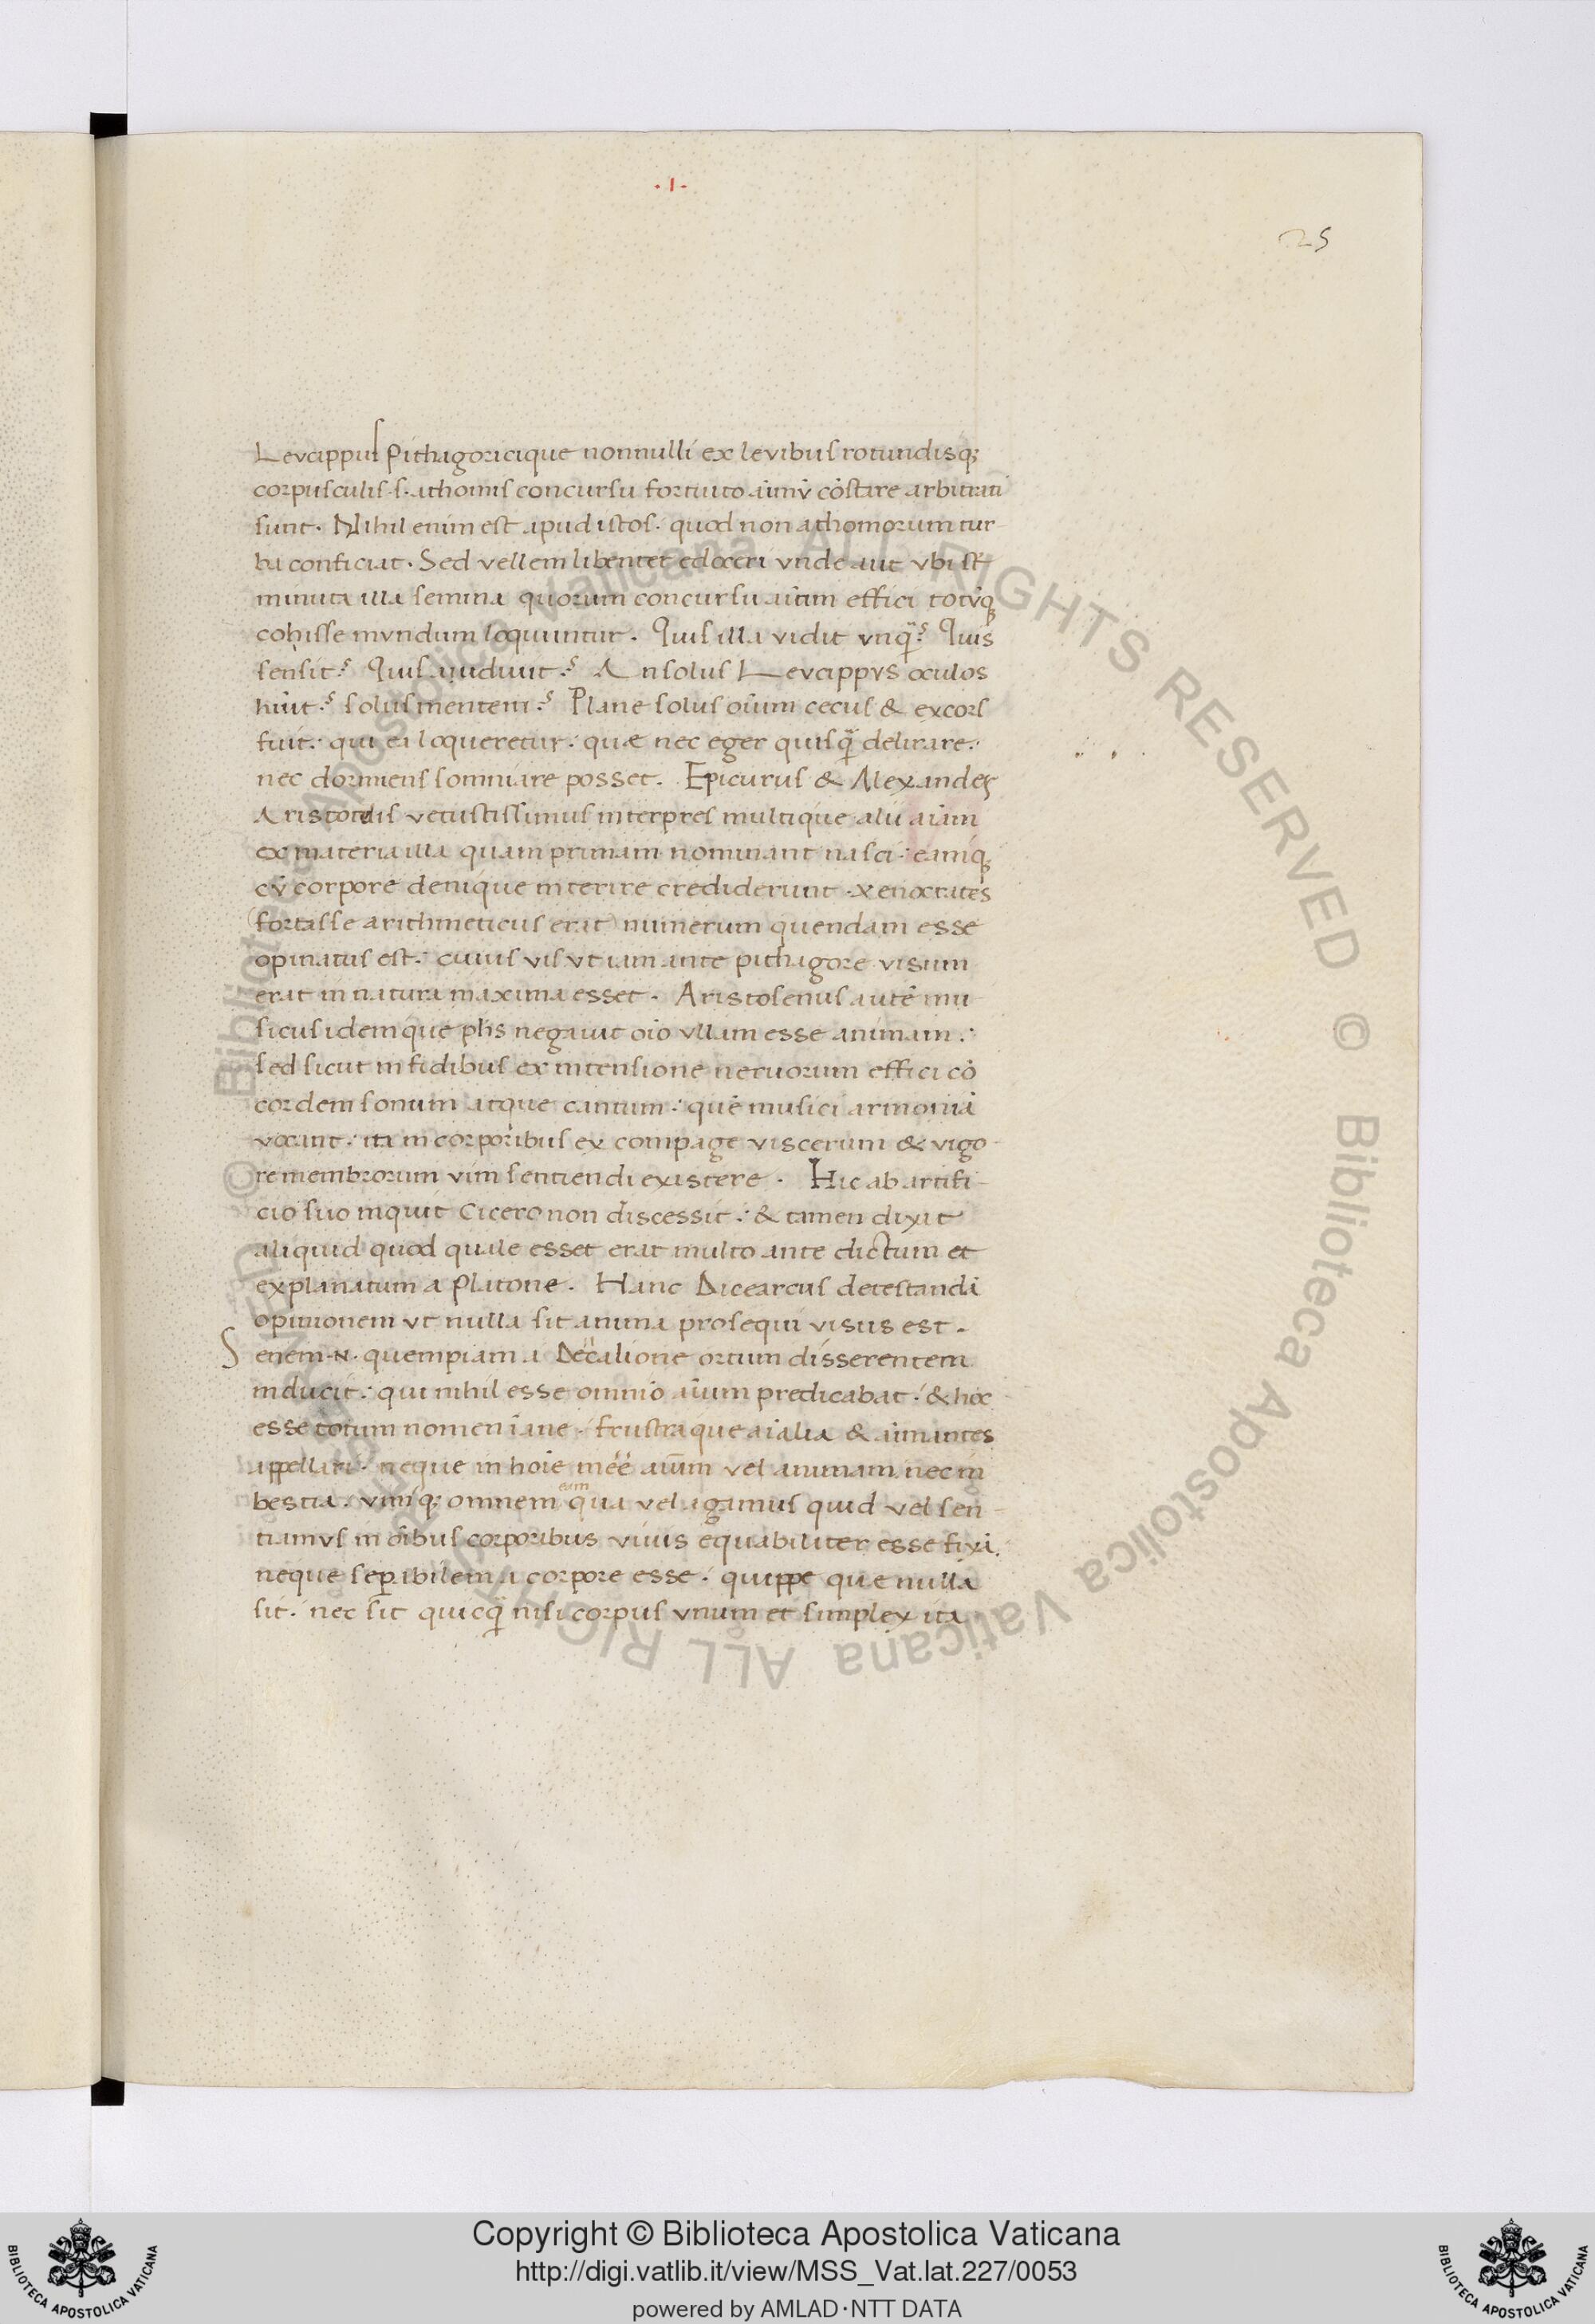 .I.
25
Leucippus Pithagoricique nonnulli ex levibus rotundisq;
corpusculis .s. athomis concursu fortuito aīmū cōstare arbitrati
sunt. Nihil enim est apud istos. quod non athomorum tur-
ba conficiat. Sed vellem libenter edoceri vnde aut vbi st̄
minuta illa semina quorum concursu aīam effici totūq
cohisse mvndum loquuntur. Quis illa vidit vnq̄? Quis
sensit? Quis audiuit? An solus Levcippvs oculos
hūit? solus mentem? Plane solus oīum cecus & excors
fuit: qui ea loqueretur: quæ nec eger quisq̄ delirare:
nec dormiens somniare posset. Epicurus & Alexander
Aristotelis vetustissimus interpres multique alii aīam
ex materia illa quam primam nominant nasci: eamq;
cū corpore denique interire crediderunt. Xenocrates
(fortasse arithmeticus erat) numerum quendam esse
opinatus est: cuius vis vt iam ante pithagore visum
erat in natura maxima esset. Aristosenus autē mu
sicus idemque phs negauit oīo vllam esse animam:
sed sicut in fidibus ex intensione neruorum effici cō
cordem sonum atque cantum: quē musici armoniā
vocant: ita in corporibus ex compage viscerum & vigo-
re membrorum vim sentiendi existere. Hic ab artifi-
cio suo inquit Cicero non discessit: & tamen dixit
aliquid quod quale esset erat multo ante dictum et
explanatum a Platone. Hanc Dicearcus detestandā
opinionem vt nulla sit anima prosequi visus est.
Senem .N. quempiam a Deucalione ortum disserentem
inducit: qui nihil esse omnio aīum predicabat: & hoc
esse totum nomen inane. frustraque aīalia & aīmantes
appellari. neque in hoīe inēē aīum vel animam nec in
bestia. vimq; omnem eam qua vel agamus quid vel sen-
tiamvs in oībus corporibus viuis equabiliter esse fixā.
neque sepabilem a corpore esse. quippe que nulla
sit. nec sit quicq̄ nisi corpus vnum et simplex ita
Copyright © Biblioteca Apostolica Vaticana
http://digi.vatlib.it/view/MSS_Vat.lat.227/0053
powered by AMLAD·NTT DATA